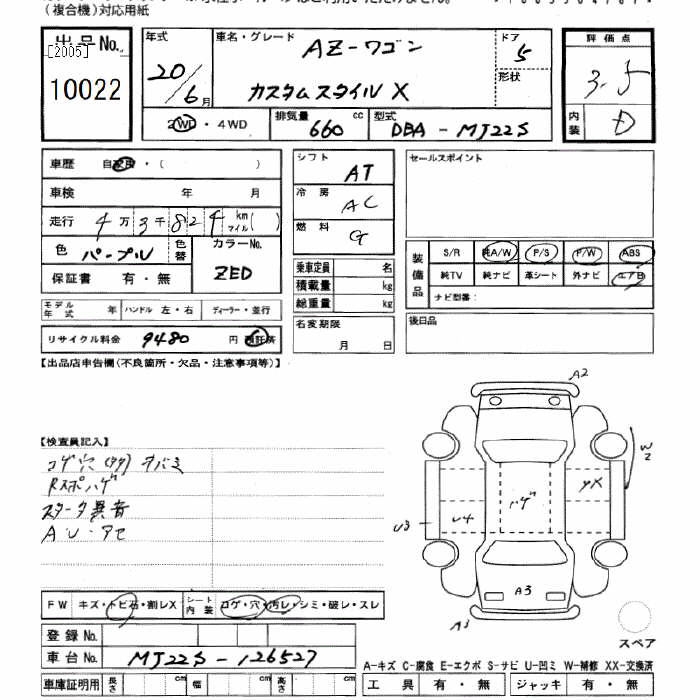 (複合機)対応用紙
出品No.
[2005]
10022
年式
20/6月
車名・グレード
AZ-ワゴン
カスタムスタイル X
ドア
5
形状
2WD・4WD
排気量
660 cc
型式
DBA - MJ22S
評価点
3.5
内装
D
車歴 自家用・( )
車検 年 月
走行 4万3千824 km マイル( )
色 パープル 色替
カラーNo.
ZED
保証書 有・無
モデル年式 年 ハンドル 左・右 ディーラー・並行
リサイクル料金 9480 円 預託済
シフト AT
冷房 AC
燃料 G
乗車定員 名
積載量 kg
総重量 kg
名変期限
月 日
セールスポイント
装備品
S/R 純A/W P/S P/W ABS
純TV 純ナビ 革シート 外ナビ エアB
ナビ型番:
後日品
【出品店申告欄(不良箇所・欠品・注意事項等)】
【検査員記入】
コゲ穴(タタ) タバミ
Rスポハゲ
スタータ異音
A・U・アセ
A2
W2
U3
U4
ハゲ
YX
A3
A3
スペア
FW キズ・トビ石・割レX
シート内装 コゲ・穴・汚レ・シミ・破レ・スレ
登録No.
車台No. MJ22S-126527
車庫証明用 長さ cm 幅 cm 高さ cm
A-キズ C-腐食 E-エクボ S-サビ U-凹ミ W-補修 XX-交換済
工具 有・無 ジャッキ 有・無